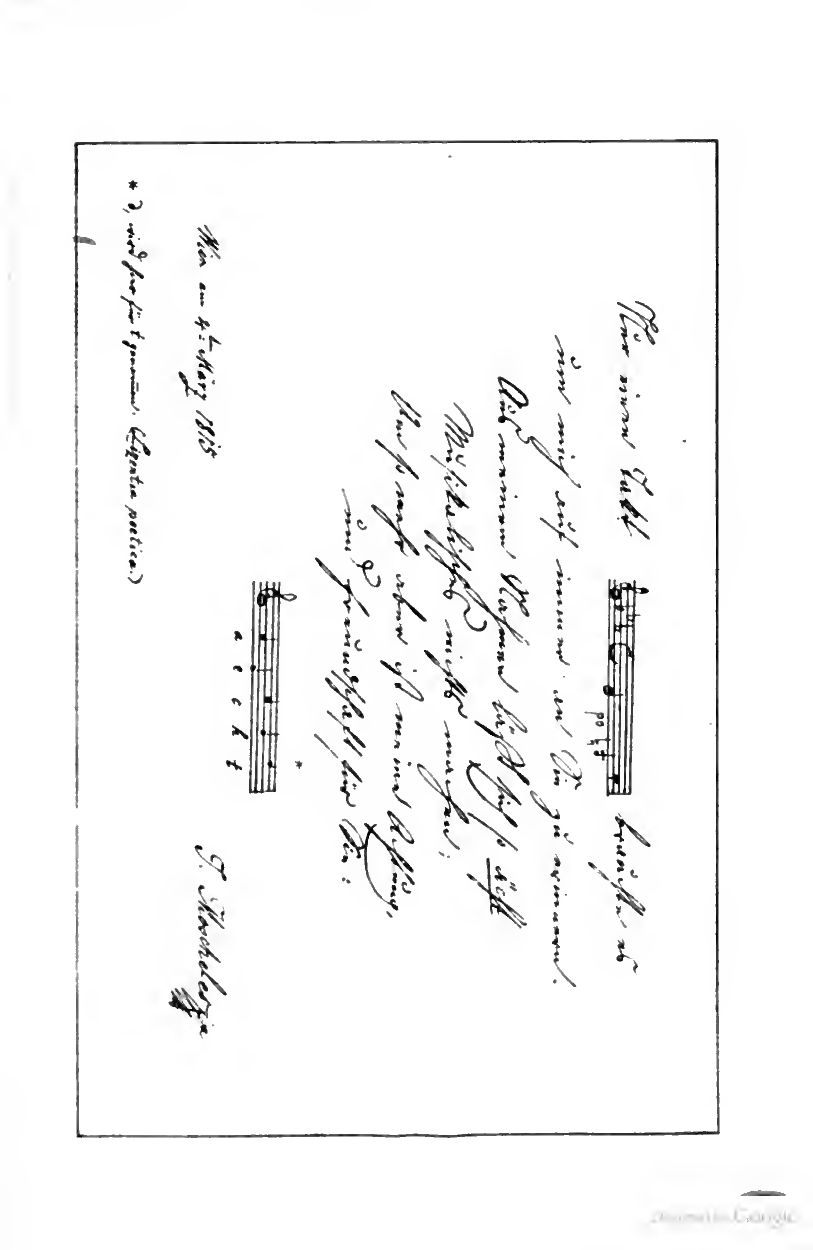 Nur einen Takt brauchte es
um mich auf immer an Sie zu erinnern.
Aus meinem Nahmen läßt sich so ächt
Musikalisches nichts machen;
Um so mehr aber ist meine Achtung,
und Freundschaft für Sie:
*
a e c h t
Wien am 4ten März 1815
J. Moscheles
* d, wird hier für t genommen. (Licentia poetica.)
Google